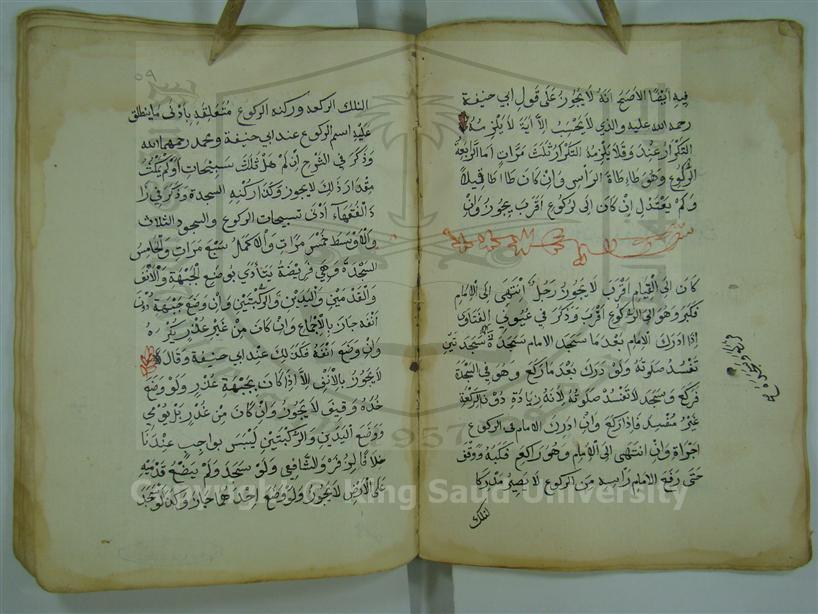 فيه ايضا الاصح انه لا يجوز على قول ابي حنيفة
رحمة الله عليه والذي لا يحسن الا اية لا يلزمه
التكرار عنده وقالا يلزمه التكرار ثلث مرات اما الرابعة
الركوع وهو طاطاة الرأس وان كان طاطا قليلا
ولم يعتدل ان كان الى الركوع اقرب يجوز وان
كان الى القيام اقرب لا يجوز رجل انتهى الى الامام
فكبر وهو الى الركوع اقرب وذكر في عيون الفتاوى
اذا ادرك الامام بعد ما سجد الامام سجدة فسجد سجدتين
تفسد صلوته ولو ادرك بعد ما ركع وهو في السجدة
فركع وسجد لا تفسد صلوته لانه زيادة دون الركعة
غير مفسد فاذا ركع وان ادرك الامام في الركوع
اجزاه وان انتهى الى الامام وهو راكع فكبر ووقف
حتى رفع الامام رأسه من الركوع لا يصير مدركا
لتلك
٥٩
لتلك الركعة وركنه الركوع متعلقة بادنى ما ينطلق
عليه اسم الركوع عند ابي حنيفة ومحمد رحمهما الله
وذكر في الشرح ان لم ثلث تسبيحات او لم يمكث
مقدار ذلك لا يجوز وكذا ركنية السجدة وذكر في زا
د الفقهاء ادنى تسبيحات الركوع والسجود الثلاث
والاوسط خمس مرات والاكمل سبع مرات والخامس
السجدة وهي فريضة يتأدى بوضع الجبهة والانف
والقدمين واليدين والركبتين وان وضع جبهته دون
انفه جاز بالاجماع وان كان من غير عذر يكره
وان وضع انفه فكذلك عند ابي حنيفة وقالا
لا يجوز بالانف الا اذا كان بجبهته عذر ولو وضع
خده وقيف لا يجوز وان كان من عذر بل يومي
ووضع اليدين والركبتين ليس بواجب عندنا
خلافا لزفر والشافعي ولو سجد ولم يضع قدميه
على الارض لا يجوز ولو وضع احدهما جاز وكذا لو سجد
1957
Copyright © King Saud University